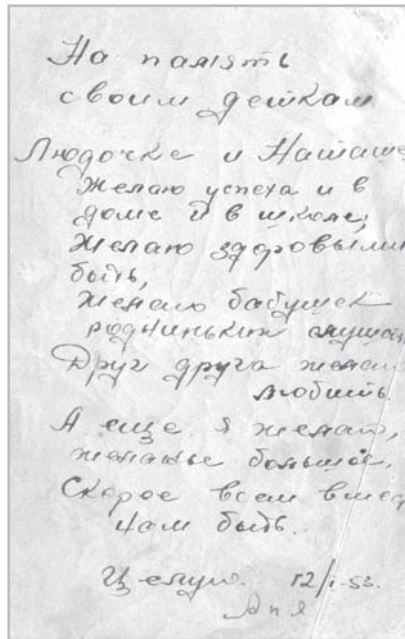 На память
своим деткам
Людочке и Наташе
Желаю успеха и в
доме и в школе,
Желаю здоровыми
быть,
Желаю бабушек
родниньких слушать
Друг друга желаю
любить.
А еще я желаю,
желанье большое,
Скорое всем вмес
нам быть.
Целую. 12/I-53.